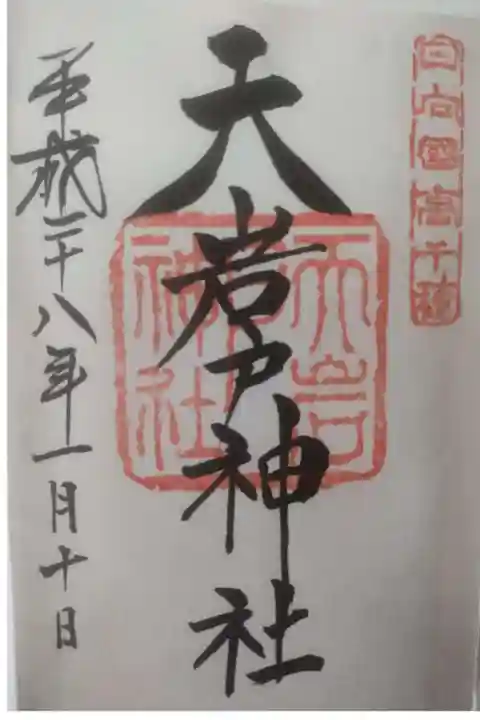 日向国高千穂
天岩戸神社
天岩戸
神社
平成二十八年一月十日